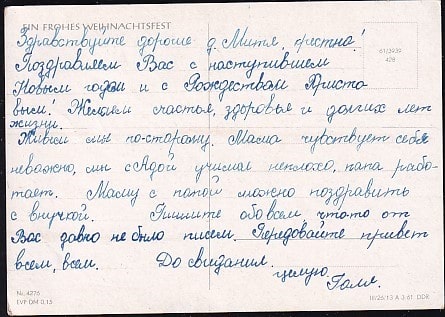 EIN FROHES WEIHNACHTSFEST
Здравствуйте дорогие д. Митя,
61/2939
428
Поздравляем Вас с наступившем
Новым годом и с Рождеством Христо
вым! Желаем счастья, здоровья и долгих лет
жизни.
Живём мы по-старому. Мама чувствует себя
неважно, мы с Адой учимся неплохо, папа рабо-
тает. Маму с папой можно поздравить
с внучкой. Пишите обо всем, что-то от
Вас давно не было писем. Передовайте привет
всем, всем. До свидания.
целую
Галя.
Nr. 4276
EVP DM 0,15
III/26/13 A 3 61 DDR